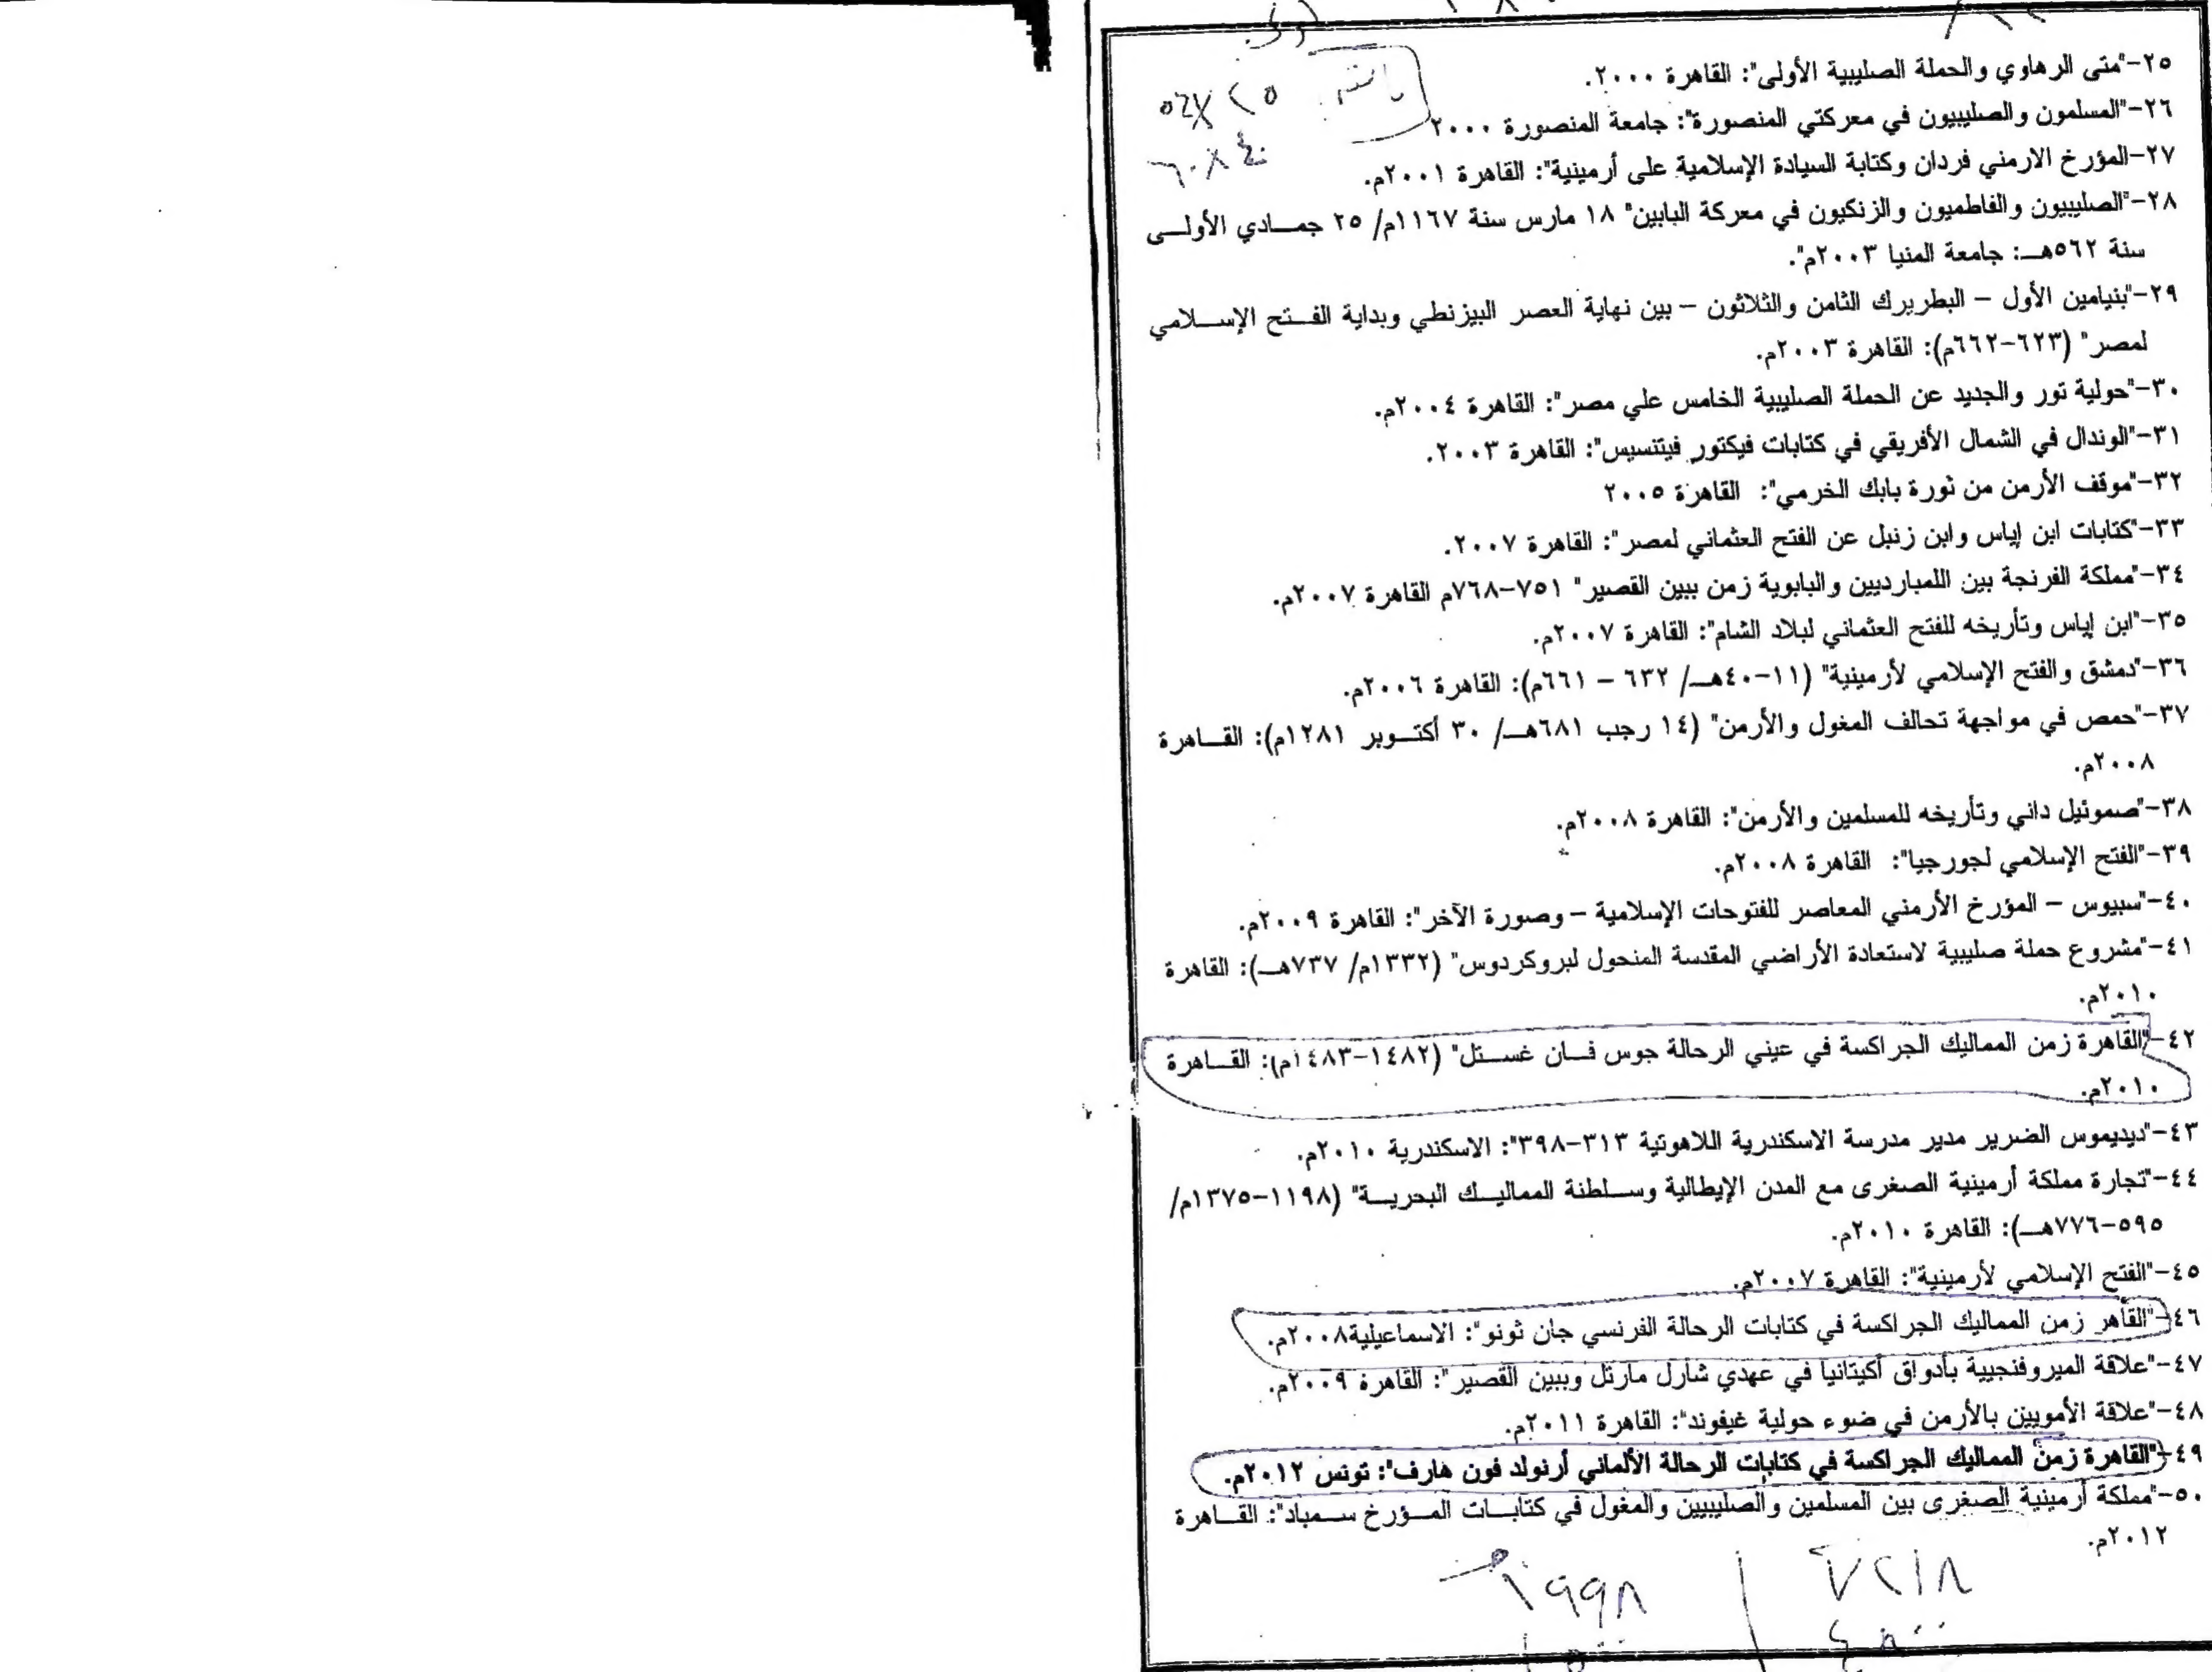 ٢٥-"متى الرهاوي والحملة الصليبية الأولى": القاهرة ٢٠٠٠.
٢٦-"المسلمون والصليبيون في معركتي المنصورة": جامعة المنصورة ٢٠٠٠
٢٧-المؤرخ الارمني فردان وكتابة السيادة الإسلامية على أرمينية": القاهرة ٢٠٠١م.
٢٨-"الصليبيون والفاطميون والزنكيون في معركة البابين" ١٨ مارس سنة ١١٦٧م/ ٢٥ جمادي الأولى
سنة ٥٦٢هـ: جامعة المنيا ٢٠٠٣م".
٢٩-"بنيامين الأول – البطريرك الثامن والثلاثون – بين نهاية العصر البيزنطي وبداية الفتح الإسلامي
لمصر" (٦٢٣-٦٦٢م): القاهرة ٢٠٠٣م.
٣٠-"حولية تور والجديد عن الحملة الصليبية الخامس علي مصر": القاهرة ٢٠٠٤م.
٣١-"الوندال في الشمال الأفريقي في كتابات فيكتور فيتنسيس": القاهرة ٢٠٠٣.
٣٢-"موقف الأرمن من ثورة بابك الخرمي": القاهرة ٢٠٠٥
٣٣-"كتابات ابن إياس وابن زنبل عن الفتح العثماني لمصر": القاهرة ٢٠٠٧.
٣٤-"مملكة الفرنجة بين اللمبارديين والبابوية زمن ببين القصير" ٧٥١-٧٦٨م القاهرة ٢٠٠٧م.
٣٥-"ابن إياس وتأريخه للفتح العثماني لبلاد الشام": القاهرة ٢٠٠٧م.
٣٦-"دمشق والفتح الإسلامي لأرمينية" (١١-٤٠هـ/ ٦٣٢ – ٦٦١م): القاهرة ٢٠٠٦م.
٣٧-"حمص في مواجهة تحالف المغول والأرمن" (١٤ رجب ٦٨١هـ/ ٣٠ أكتوبر ١٢٨١م): القاهرة
٢٠٠٨م.
٣٨-"صموئيل داني وتأريخه للمسلمين والأرمن": القاهرة ٢٠٠٨م.
٣٩-"الفتح الإسلامي لجورجيا": القاهرة ٢٠٠٨م.
٤٠-"سبيوس – المؤرخ الأرمني المعاصر للفتوحات الإسلامية – وصورة الآخر": القاهرة ٢٠٠٩م.
٤١-"مشروع حملة صليبية لاستعادة الأراضي المقدسة المنحول لبروكردوس" (١٣٣٢م/ ٧٣٧هـ): القاهرة
٢٠١٠م.
٤٢-"القاهرة زمن المماليك الجراكسة في عيني الرحالة جوس فان غستل" (١٤٨٢-١٤٨٣م): القاهرة
٢٠١٠م.
٤٣-"ديديموس الضرير مدير مدرسة الاسكندرية اللاهوتية ٣١٣-٣٩٨": الاسكندرية ٢٠١٠م.
٤٤-"تجارة مملكة أرمينية الصغرى مع المدن الإيطالية وسلطنة المماليك البحرية" (١١٩٨-١٣٧٥م/
٥٩٥-٧٧٦هـ): القاهرة ٢٠١٠م.
٤٥-"الفتح الإسلامي لأرمينية": القاهرة ٢٠٠٧م.
٤٦-"القاهر زمن المماليك الجراكسة في كتابات الرحالة الفرنسي جان ثونو": الاسماعيلية٢٠٠٨م.
٤٧-"علاقة الميروفنجيية بأدواق أكيتانيا في عهدي شارل مارتل وببين القصير": القاهرة ٢٠٠٩م.
٤٨-"علاقة الأمويين بالأرمن في ضوء حولية غيفوند": القاهرة ٢٠١١م.
٤٩-"القاهرة زمن المماليك الجراكسة في كتابات الرحالة الألماني أرنولد فون هارف": تونس ٢٠١٢م.
٥٠-"مملكة أرمينية الصغرى بين المسلمين والصليبيين والمغول في كتابات المؤرخ سمباد": القاهرة
٢٠١٢م.